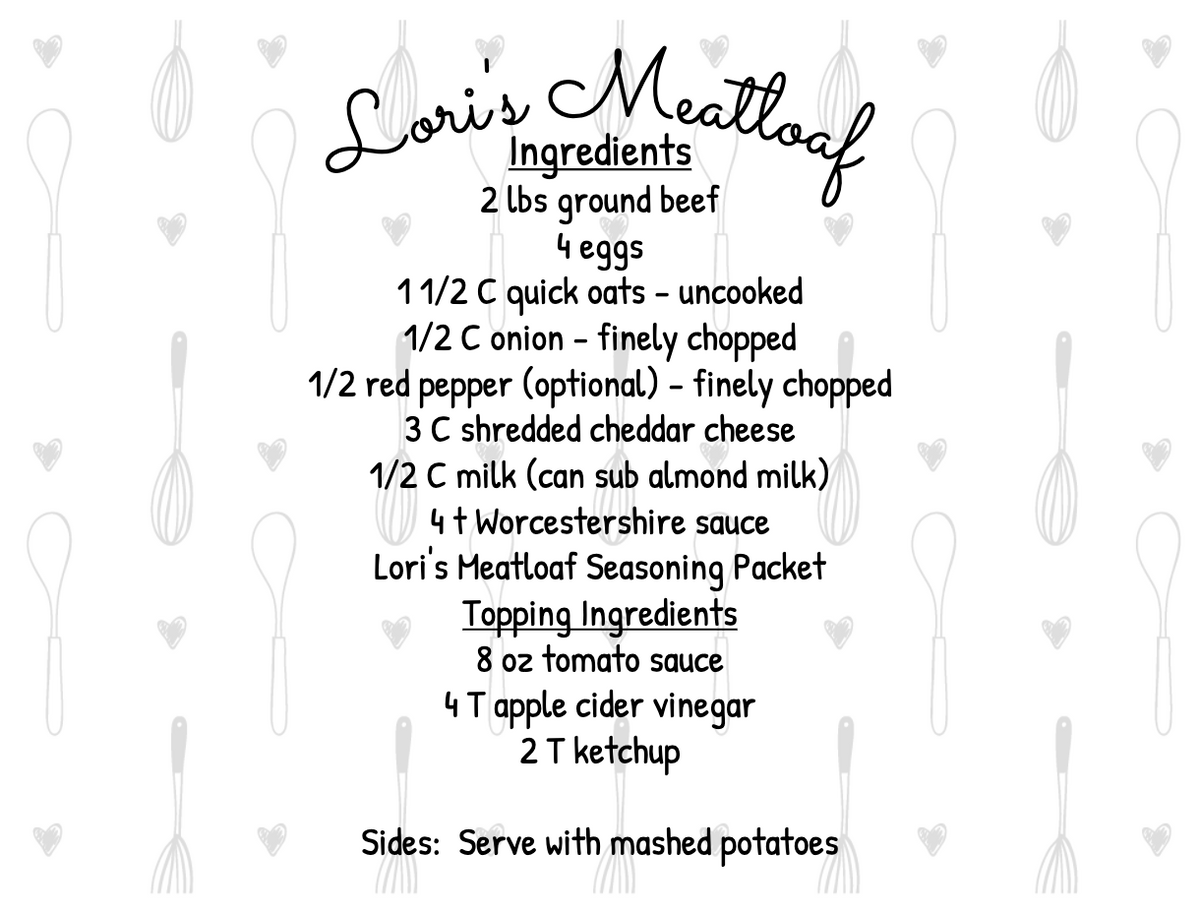 Lori's Meatloaf
Ingredients
2 lbs ground beef
4 eggs
1 1/2 C quick oats - uncooked
1/2 C onion - finely chopped
1/2 red pepper (optional) - finely chopped
3 C shredded cheddar cheese
1/2 C milk (can sub almond milk)
4 t Worcestershire sauce
Lori's Meatloaf Seasoning Packet
Topping Ingredients
8 oz tomato sauce
4 T apple cider vinegar
2 T ketchup
Sides: Serve with mashed potatoes